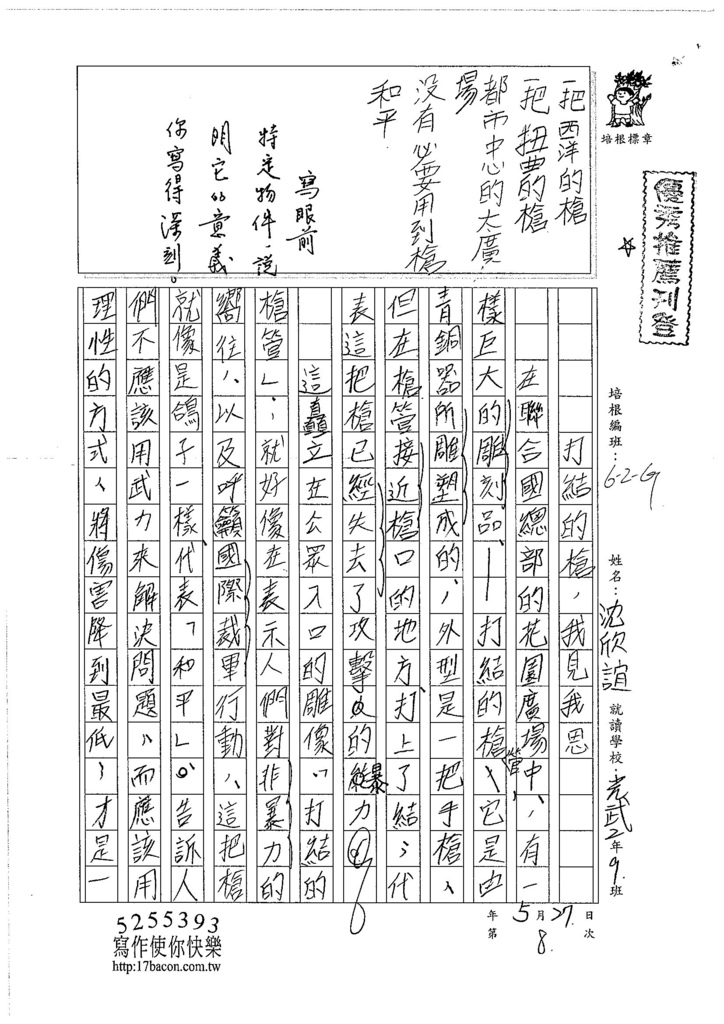 培根標章
優秀推薦刊登
☆
培根編班：6-2-G
姓名：沈欣誼
就讀學校：光武
2年9班
年5月27日
第8次
一把西洋的槍
一把扭曲的槍
都市中心的大廣場
沒有必要用到槍
和平
寫眼前
特定物件，說
明它的意義
你寫得深刻。
打結的槍，我見我思
在聯合國總部的花園廣場中，有一
樣巨大的雕刻品——打結的槍管，它是由
青銅器所雕塑成的，外型是一把手槍，
但在槍管接近槍口的地方，打上了結，代
表這把槍已經失去了攻擊的暴力。
這矗立在公眾入口的雕像「打結的
槍管」，就好像在表示人們對非暴力的
嚮往，以及呼籲國際裁軍行動，這把槍
就像是鴿子一樣，代表「和平」。告訴人
們不應該用武力來解決問題，而應該用
理性的方式，將傷害降到最低，才是一
5255393
寫作使你快樂
http:17bacon.com.tw